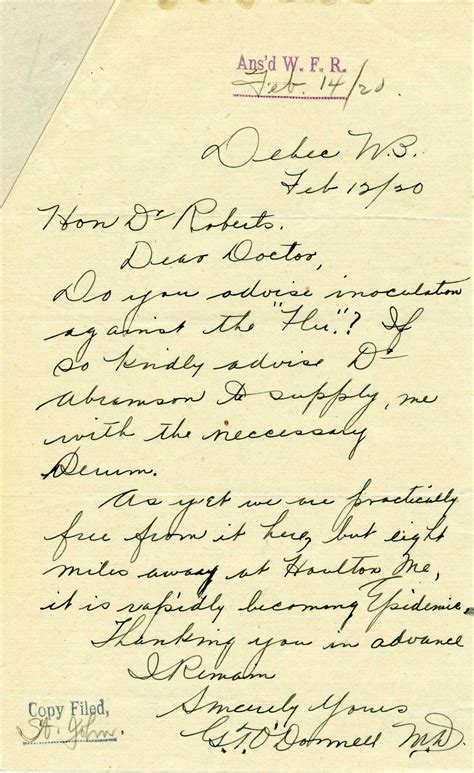 Ans'd W. F. R.
Feb. 14/20.
Debec N.B.
Feb 12/20
Hon Dr Roberts.
Dear Doctor,
Do you advise inoculation
against the "Flu"? If
so kindly advise Dr
Abramson to supply, me
with the neccessary
Serum.
As yet we are practically
free from it here, but eight
miles away at Houlton Me,
it is rapidly becoming Epidemic,
Thanking you in advance
I Remain
Sincerely Yours
G.T. O'Donnell M.D.
Copy Filed,
St. John.